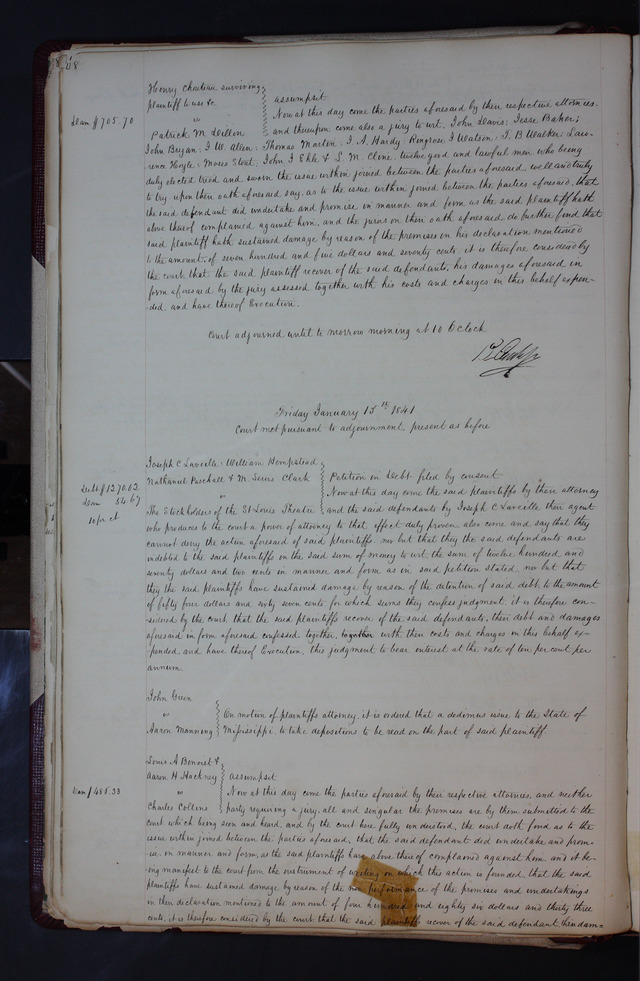 68
Henry Chouteau surviving
plaintiff to use &c. assumpsit
Dam $705.70
vs Now at this day come the parties aforesaid by their respective attornies.
Patrick M Dillon and thereupon come also a jury to wit, John Davis; Jesse Baker;
John Bryan; J W. Allen; Thomas Martin; J. A. Hardy Ringrose J Watson; T. B Walker; Law-
rence Hoyle; Moses Stout; John J Ehle & S. M. Clone, twelve good and lawful men who being
duly elected tried and sworn the issue within joined between the parties aforesaid well and truly
to try upon their oath aforesaid say, as to the issue within joined between the parties aforesaid, that
the said defendant did undertake and promise in manner and form as the said plaintiff hath
above thereof complained against him, and the jurors on their oath aforesaid do further find that
said plaintiff hath sustained damage by reason of the premises in his declaration mentioned
to the amount, of seven hundred and five dollars and seventy cents it is therefore considered by
the court that the said plaintiff recover of the said defendants, his damages aforesaid in
form aforesaid by the jury assessed together with his costs and charges in this behalf expen-
ded, and have thereof Execution.
Court adjourned until to morrow morning at 10 O'clock
Friday January 15th 1841
Court met pursuant to adjournment, present as before
Joseph C Laveille; William Hempstead
Nathaniel Paschall & M. Lewis Clark Petition in Debt filed by consent
Debt $1270.02
Dam 54.67
10 pr ct
vs Now at this day come the said plaintiffs by their attorney
The Stockholders of the St Louis Theatre and the said defendants by Joseph C Laveille their agent
who produces to the court a power of attorney to that effect duly proven also come and say that they
cannot deny the action aforesaid of said plaintiffs. nor but that they the said defendants are
indebted to the said plaintiffs in the said sum of money to wit the sum of twelve hundred and
seventy dollars and two cents in manner and form as in said petition stated, nor but that
they the said plaintiffs have sustained damage by reason of the detention of said debt, to the amount
of fifty four dollars and sixty seven cents for which sums they confess judgment, it is therefore con-
sidered by the court that the said plaintiffs recover of the said defendants, their debt and damages
aforesaid in form aforesaid confessed together, together with their costs and charges in this behalf ex-
pended, and have thereof Execution, this judgment to bear interest at the rate of ten per cent per
annum.
John Green
vs On motion of plaintiffs attorney, it is ordered that a dedimus issue to the State of
Aaron Manning Mississippi, to take depositions to be read on the part of said plaintiff
Louis A Benoist &
Aaron H Hackney assumpsit
Dam $486.33
vs Now at this day come the parties aforesaid by their respective attornies, and neither
Charles Collins party requiring a jury, all and singular the premises are by them submitted to the
court which being seen and heard, and by the court here fully understood, the court doth find as to the
issue within joined between the parties aforesaid, that the said defendant did undertake and prom-
ise in manner and form, as the said plaintiffs have above thereof complained against him, and it be-
ing manifest to the court from the instrument of writing on which this action is founded, that the said
plaintiffs have sustained damage by reason of the non performance of the premises and undertakings
in their declaration mentioned to the amount of four hundred and eighty six dollars and thirty three
cents, it is therefore considered by the court that the said plaintiffs recover of the said defendant their dam-